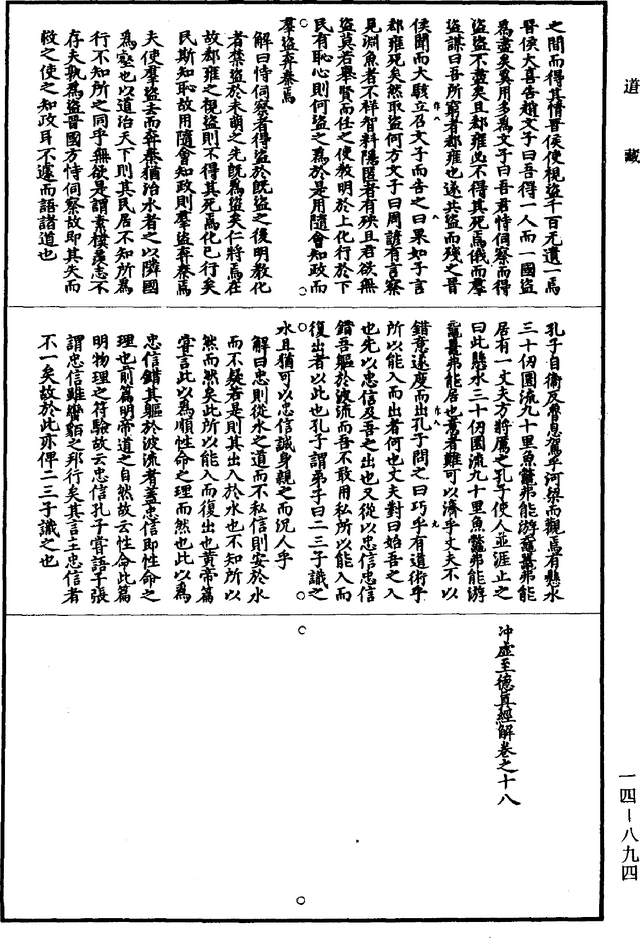 道藏
之間而得其情晉侯使視盜千百无遺一焉
晉侯大喜告趙文子曰吾得一人而一國盜
為盡矣奚用多為文子曰吾君恃伺察而得
盜盜不盡矣且郄雍必不得其死焉俄而羣
盜謀曰吾所窮者郄雍也遂共盜而殘之晉
侯聞而大駭立召文子而告之曰果如子言
郄雍死矣然取盜何方文子曰周諺有言察
見淵魚者不祥智料隱匿者有殃且君欲無
盜莫若舉賢而任之使教明於上化行於下
民有恥心則何盜之為於是用隨會知政而
羣盜奔秦焉
解曰恃伺察者得盜於旣盜之後明教化
者禁盜於未萌之先旣為盜矣仁將焉在
故郄雍之視盜則不得其死焉化已行矣
民斯知恥故用隨會知政則羣盜奔秦焉
夫使羣盜去而奔秦猶治水者之以隣國
為壑也以道治天下則其民居不知所為
行不知所之同乎無欲是謂素樸奚恙不
存夫孰為盜晉國方恃伺察故即其失而
救之使之知政耳不遽而語諸道也
孔子自衛反魯息駕乎河梁而觀焉有懸水
三十仞圜流九十里魚鼈弗能游黿鼉弗能
居有一丈夫方將厲之孔子使人並涯止之
曰此懸水三十仞圜流九十里魚鼈弗能游
黿鼉弗能居也意者難可以濟乎丈夫不以
錯意遂度而出孔子問之曰巧乎有道術乎
所以能入而出者何也丈夫對曰始吾之入
也先以忠信及吾之出也又從以忠信忠信
錯吾軀於波流而吾不敢用私所以能入而
復出者以此也孔子謂弟子曰二三子識之
水且猶可以忠信誠身親之而況人乎
解曰忠則從水之道而不私信則安於水
而不疑若是則其出入於水也不知所以
然而然矣此所以能入而復出也黄帝篇
嘗言此以為順性命之理而然也此以為
忠信錯其軀於波流者蓋忠信即性命之
理也前篇明帝道之自然故云性命此篇
明物理之符驗故云忠信孔子嘗語子張
謂忠信雖蠻貊之邦行矣其言主忠信者
不一矣故於此亦俾二三子識之也
冲虛至德真經解卷之十八
一四－八九四